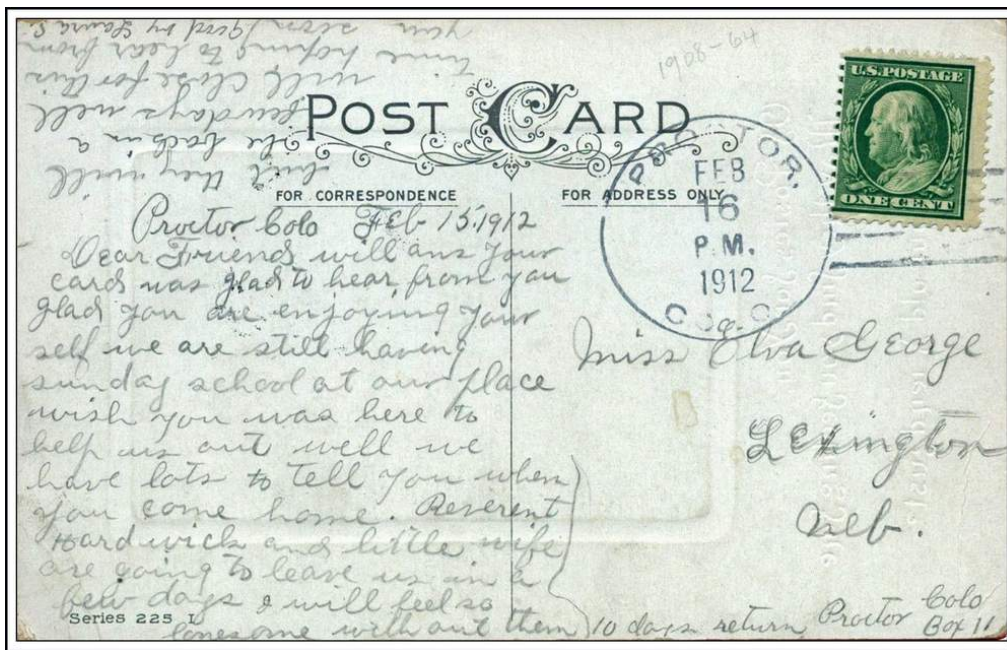 POST CARD
FOR CORRESPONDENCE
FOR ADDRESS ONLY
1908-64
U.S. POSTAGE
ONE CENT
PROCTOR,
FEB
16
P.M.
1912
COLO.
Proctor Colo Feb 15, 1912
Dear Friends will ans your
cards was glad to hear from you
glad you are enjoying your
self we are still having
sunday school at our place
wish you was here to
help us out well we
have lots to tell you when
you come home. Reverent
Hardwick and little wife
are going to leave us in a
few days I will feel so
lonesome without them
but they will
be back in a
few days well
will close for this
time hoping to hear from
you soon Good by Laura S.
Miss Elva George
Lexington
Neb.
10 days return Proctor Colo
Box 11
Series 225 I